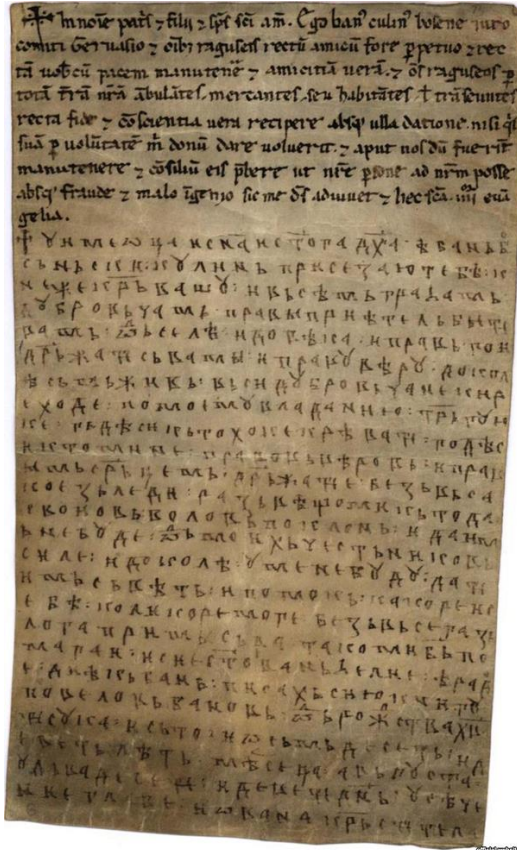 ☩ In noīe patˢ ⁊ filii ⁊ spˢ scī am̄. Ego ban' culin' bosene iuro
comiti Gervasio ⁊ oībꝫ raguseis rectū amicū fore ꝑpetuo ⁊ rec
tā uobˢcū pacem manutenēe ⁊ amicitiā verā. ⁊ oēs raguseos ꝑ
totā t̄rā nr̄ā ābulātes, mercantes, seu habitātes ł trāseuntes
recta fide ⁊ cōscientia vera recipere absqꝫ ulla datione nisi qˢ
suā ꝑ volūtatē m̄ donū dare voluerit. ⁊ aput nos dū fuerīt
manutenere ⁊ cōsiliū eis p̄bere ut nr̄e ꝑsone ad nr̄m posse
absqꝫ fraude ⁊ malo īgenio sic me dˢ adiuuet ⁊ hec scā. iiii euā
gelia.
† ꙋ име ѡца и сна и стога дха · ѣ бань бо
сьньски · кꙋлинь присезаю тебѣ · к
неже крьвашꙋ : и вьсѣмь грађамь
дꙋбровьчамь · правы приѣтель быти
вамь · ѿ селѣ · и довѣка · и правь гои
дрьжати сь вами · и правꙋ вѣрꙋ · докол
ѣ сьмь живь · вьси дꙋбровьчане кир
еходе · по моемꙋ владанию · трьгꙋю
ке · гьдѣ си кьто хоке крѣвати · годѣ с
и кто мине · правовь вѣровь · и прав
имь срьцемь · дрьжати е · безь вьса
кое зьледи · развѣ що ми кьто да
своиовь воловь поклонь · и да им
ь не бꙋде · ѿ моихь чесьниковь
силе · и доколѣ · ꙋ мене бꙋдꙋ · дати
имь сьвѣть · и помокь · какоре и с
ебѣ · коликоре моге · безь вьсега зь
лога примысьла · тако ми бже по
маган · и сие стое еванђелие · ѣ рад
ое · диѣкь бань · писахь сию книгꙋ
повеловь бановь · ѿ рожства хва
тисꙋка · и сьто · и осьмьдесеть · и д
еветь лѣть · мѣсеца · авьгꙋста ·
ꙋ дьвадесети · и девети · дьнь · ꙋсѣче
ние главе · иована крьститела